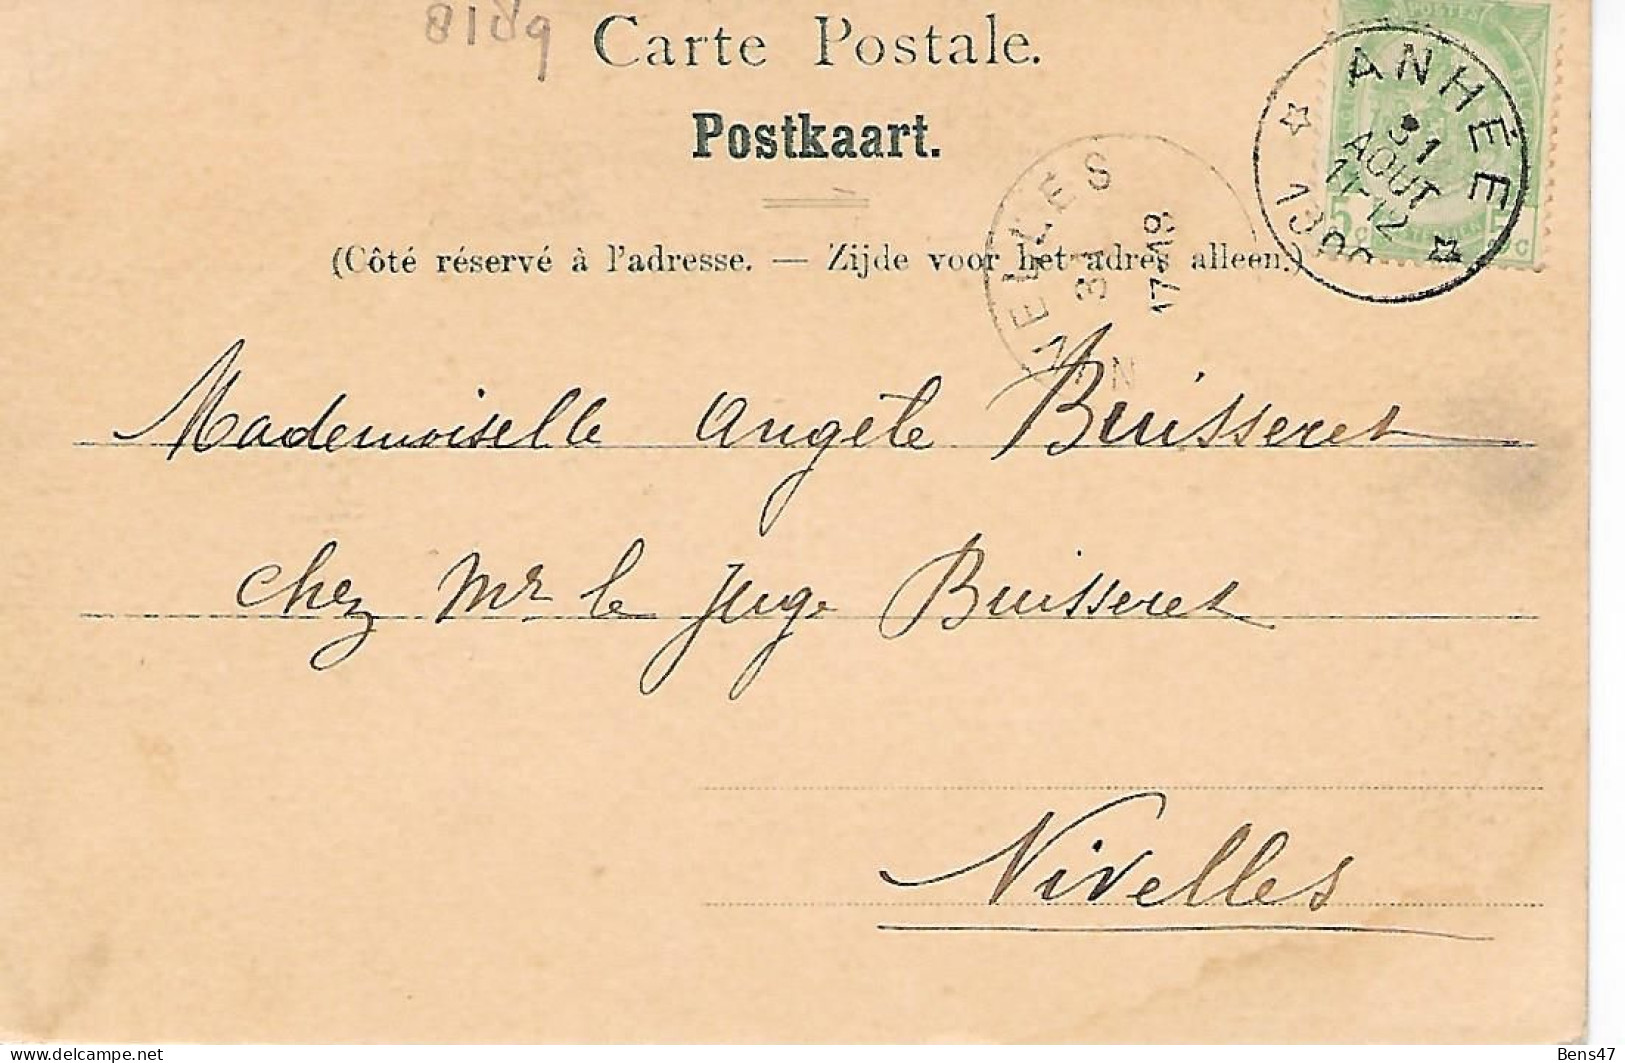 Carte Postale.
Postkaart.
(Côté réservé à l'adresse. — Zijde voor het adres alleen.)
POSTES
5 c 5 c
ANHÉE
31
AOUT
11-12
NIVELLES
31
17-18
Mademoiselle Angèle Buisseret
chez Mr le Juge Buisseret
Nivelles
Bens47